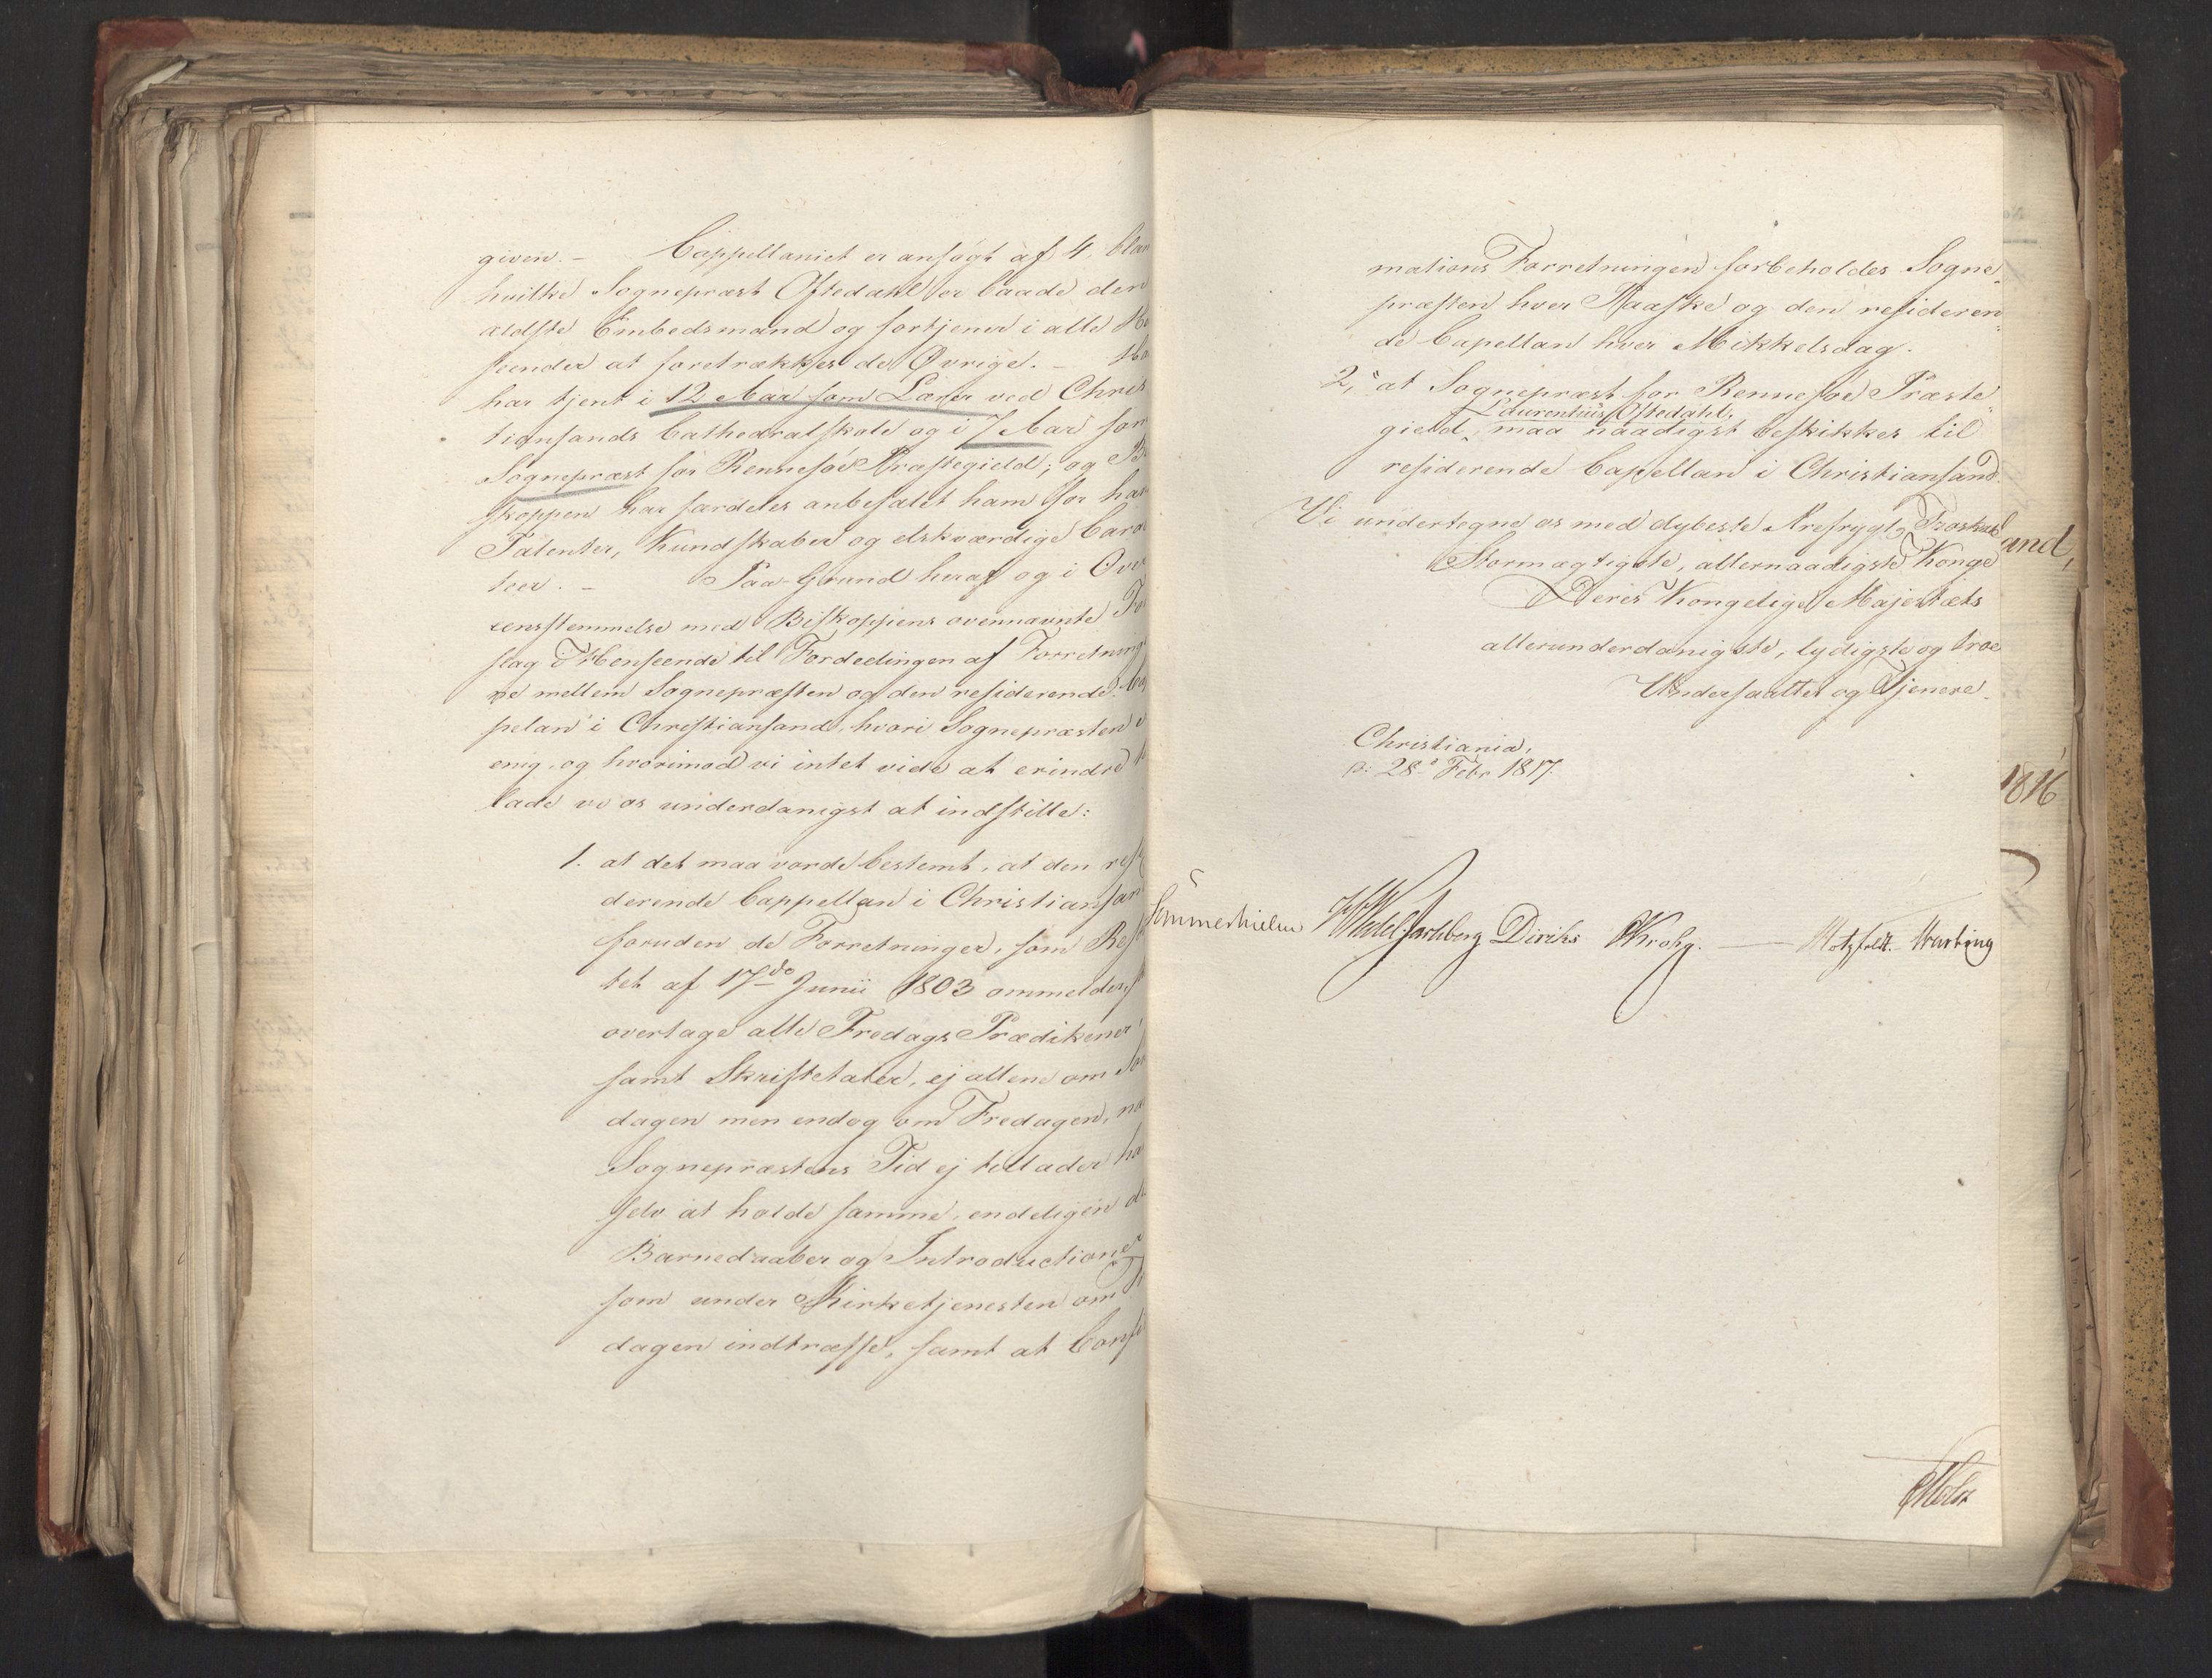 given. – Cappellaniet er ansøgt af 4, blan
hvilke Sognepræst Oftedahl er baade den
ældste Embedsmand og fortjener i alle He
seender at foretrækkes de Øvrige. – Ha
har tjent i 12 Aar som Lærer ved Chris
tiansands Cathedralskole og i 7 Aar som
Sognepræst for Rennesøe Præstegield; og Bi
skoppen har særdeles anbefalet ham for han
Talenter, Kundskaber og elskværdige Carac
teer. – Paa Grund heraf og i Over
eensstemmelse med Biskoppens ovennævnte For
slag i Henseende til Fordeelingen af Forretninge
ne mellem Sognepræsten og den residerende Ca
pelan i Christiansand, hvori Sognepræsten e
enig, og hvorimod vi intet vide at erindre
lade vi os underdanigst at indstille:
1. at det maa vorde bestemt, at den resi
derende Cappellan i Christiansan
foruden de Forretninger, som Res
tet af 17de Junii 1803 ommelder,
overtage alle Fredags Prædikener,
samt Skriftetaler, ej allene om Løv
dagen men endog om Fredagen, na
Sognepræstens Tid ej tillader ha
selv at holde samme, endeligen de
Barnedaaber og Introductioner
som under Kirketjenesten om
dagen indtræffe, samt at Confi
mations Forretningen forbeholdes Sogne
præsten hver Paaske og den residere
de Capellan hver Mikkelsdag.
2, at Sognepræst for Rennesøe Præste
Laurentius Oftedahl,
gield, maa naadigst beskikkes til
residerende Capellan i Christiansand.
Vi undertegne os med dybeste Ærefrygt, Troskab
and,
Stormægtigste, allernaadigste Konge
Deres Kongelige Majestæts
allerunderdanigste, lydigste og troe
Undersaatter og Tjenere.
Christiania,
d: 28de Febr 1817.
1816
Sommerhielm HWedel Jarlsberg Diriks CKrohg. — Motzfeldt. Hvarting